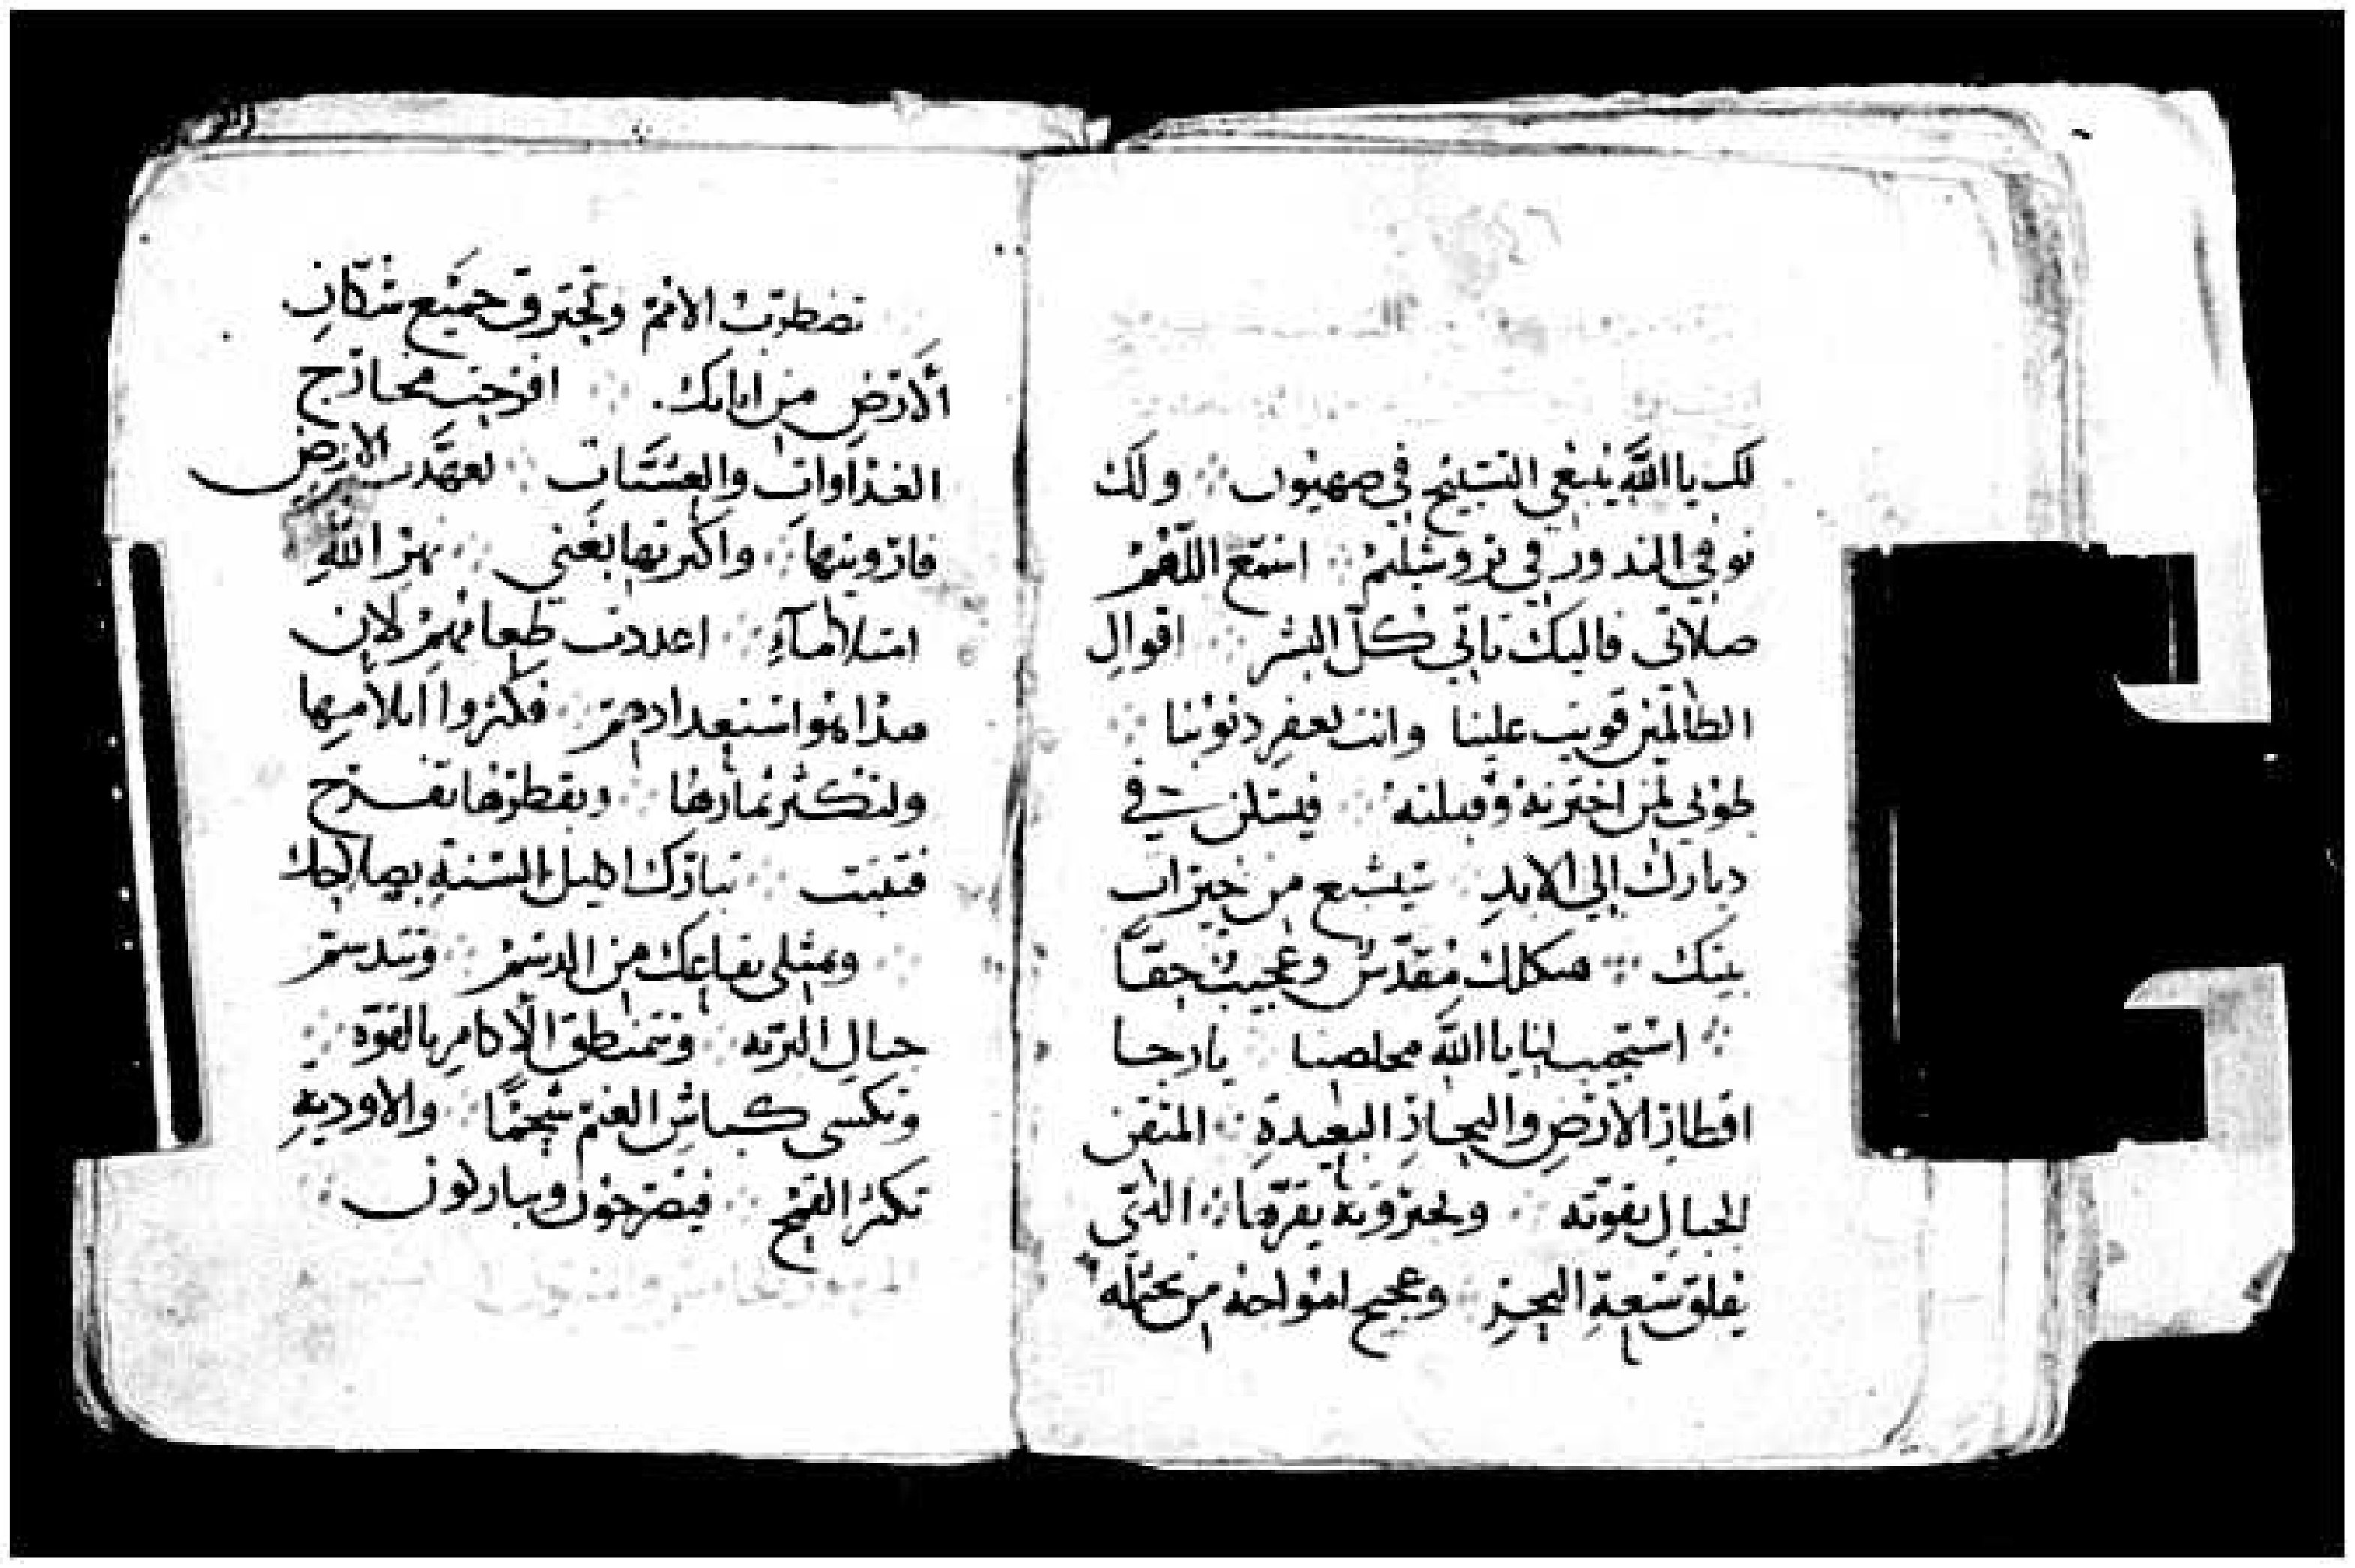 لك يا اللَّه ينبغي التسبيح في صهيون ولك
توفي الندور في يروشليم استمع اللّهم
صلاتي فاليك تاتي كلّ البشر اقوال
الظالمين قويت علينا وانت تغفر ذنوبنا
طوبي لمن اخترته وقبلته فيسكن في
ديارك الي الابد سيشبع من خيرات
بيتك هيكلك مقدّس وعجيب حقاً
استجيب لنا يا اللَّه مخلصنا يا رجا
اقطار الارض والبحار البعيدة المتقن
الجبال بقوّته وبجبروته يقرّها الذي
يقلق سعة البحر وعجيج امواجه من يحتمله
تضطرب الامم وتحترق جميع سكان
الارض من اياتك. افرحت مخارج
الغذاوات والعشيّات تعهّدت الارض
فارويتها واكثرتها بغني نهر اللّه
امتلا مآء اعددت طعامهم لان
هذا هو استعدادهم فكثروا اثلامها
ولتكثر ثمارها وبقطرها تفرح
فتنبت تبارك اكليل السنة بصالحك
وتمتلي بقاعك من الدسم وتتدسم
جبال البريه وتتمنطق الآكام بالقوّه
وتكسي كباش الغنم شحمًا والاودية
تكثر القمح فيصرخون ويباركون